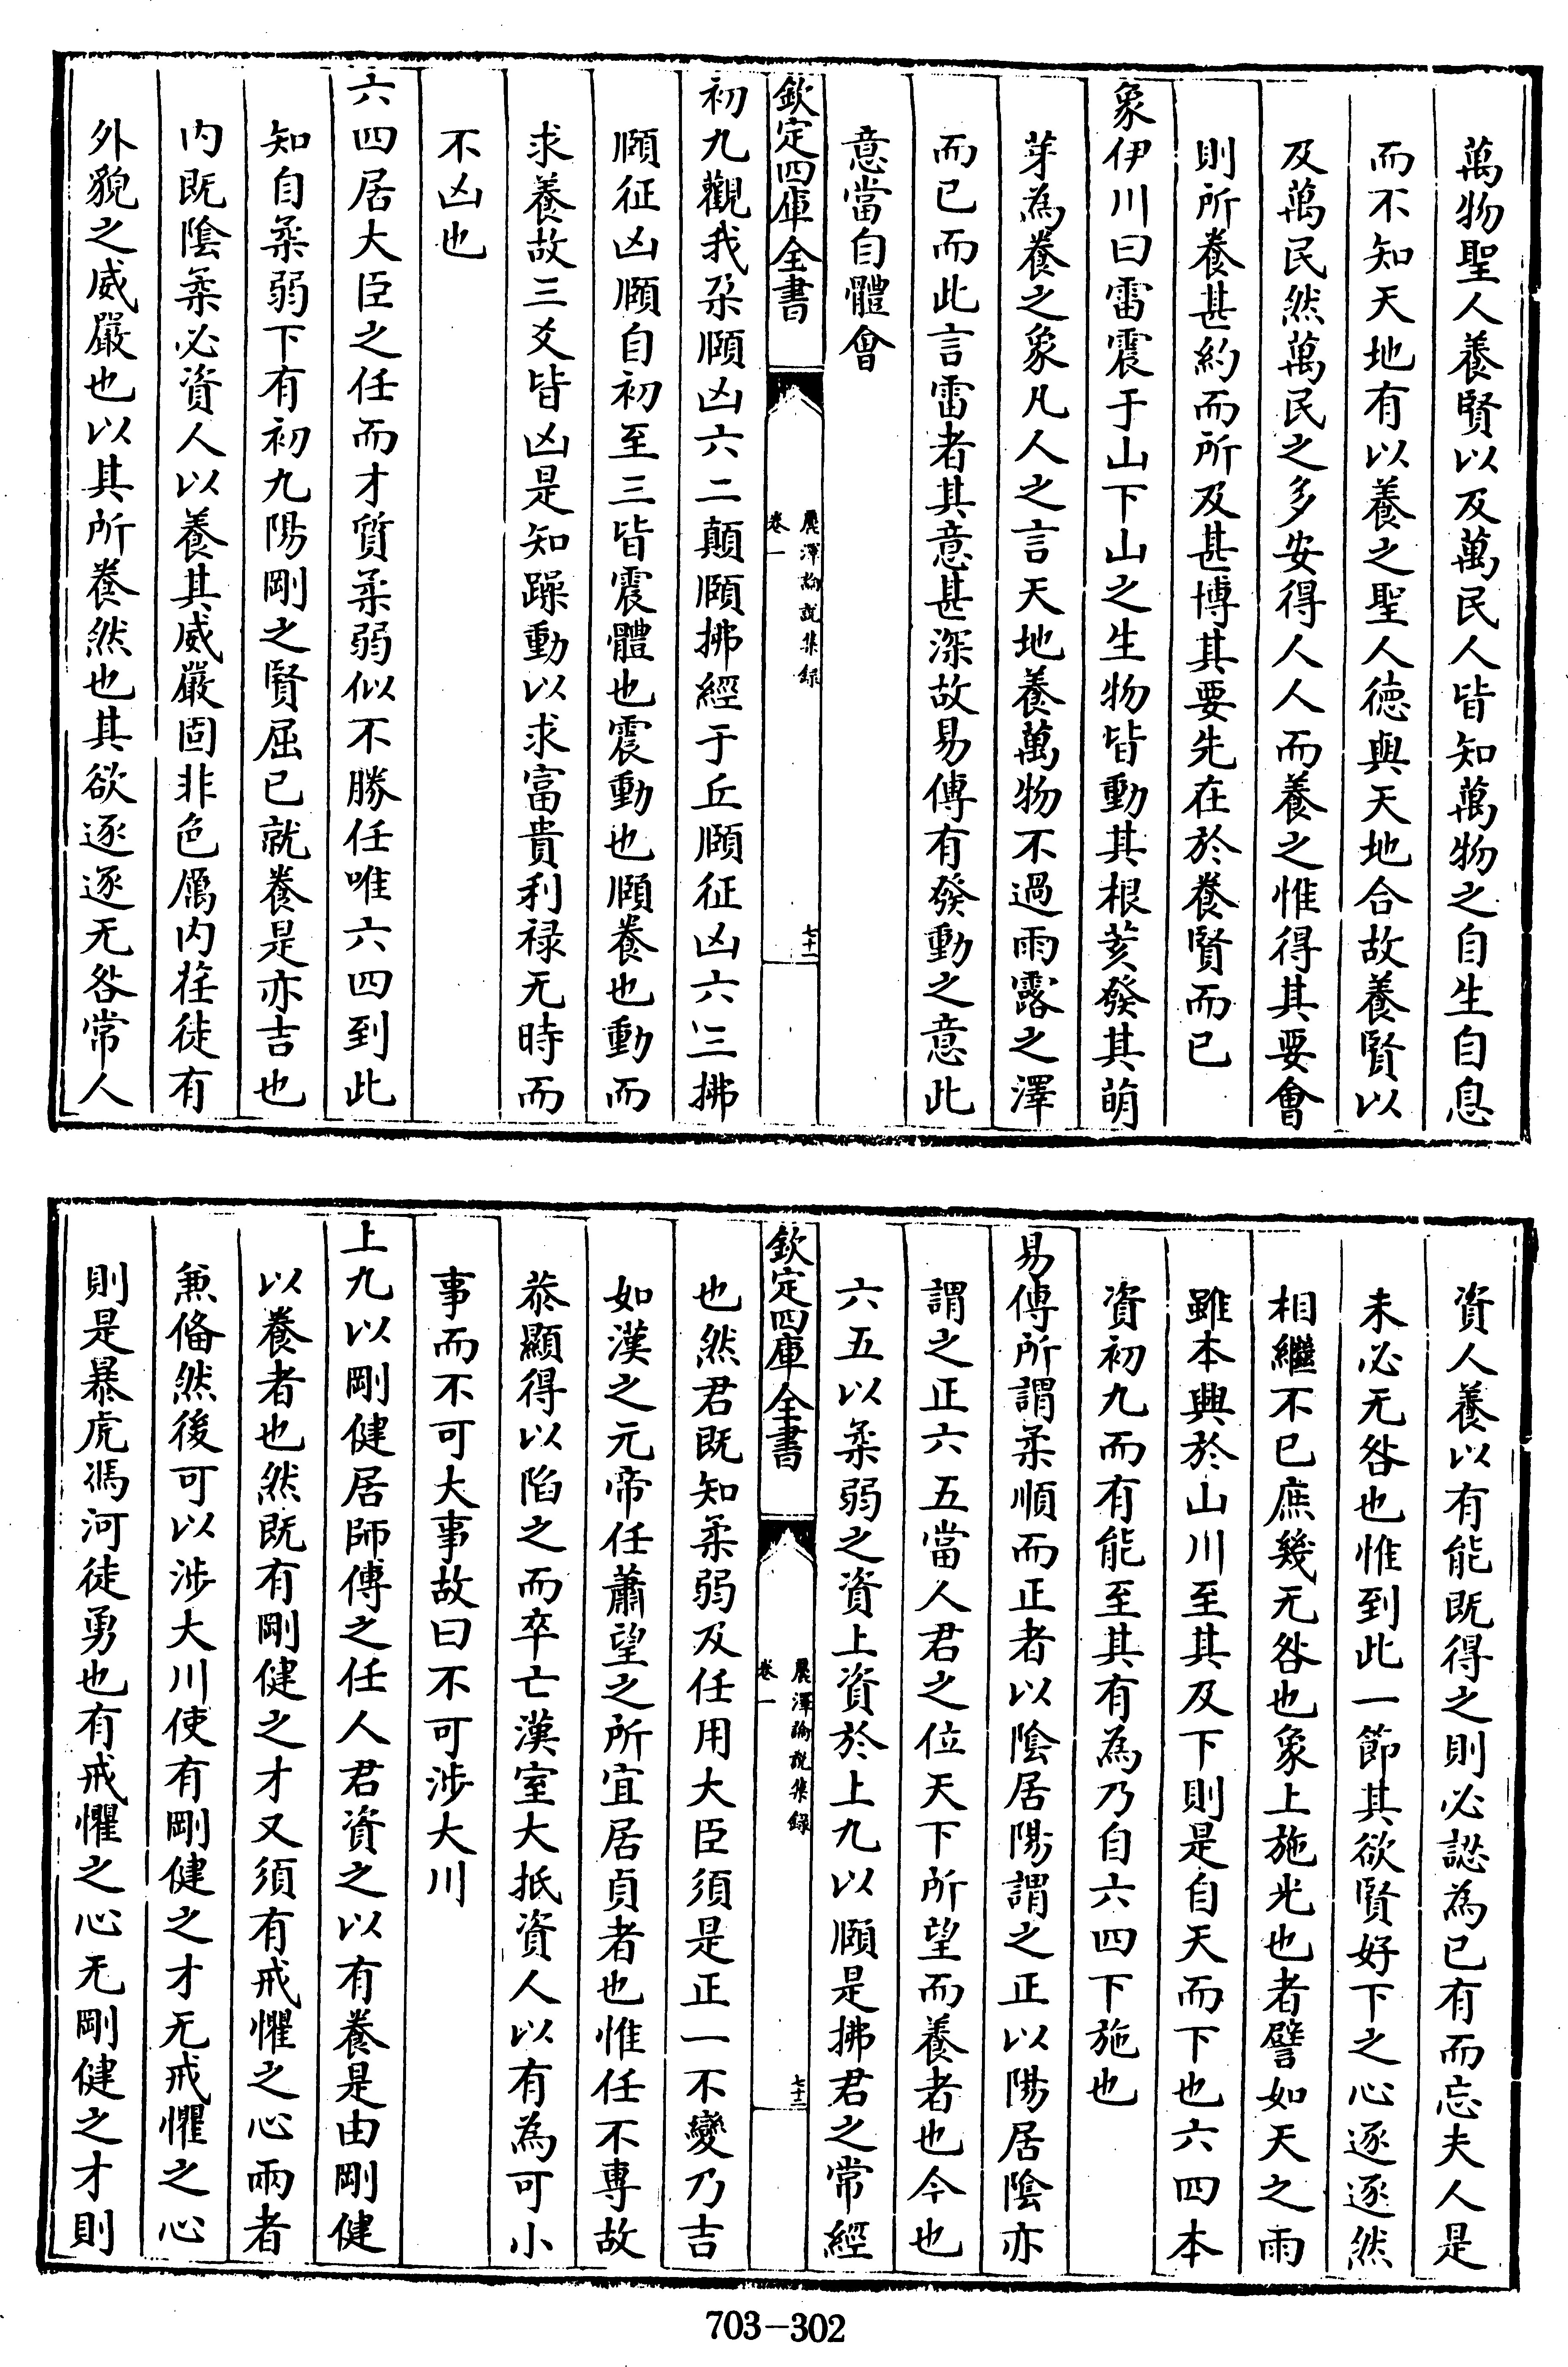 萬物聖人養賢以及萬民人皆知萬物之自生自息
而不知天地有以養之聖人德與天地合故養賢以
及萬民然萬民之多安得人人而養之惟得其要會
則所養甚約而所及甚博其要先在於養賢而已
象伊川曰雷震于山下山之生物皆動其根荄發其萌
芽為養之象凡人之言天地養萬物不過雨露之澤
而已而此言雷者其意甚深故易傳有發動之意此
意當自體會
欽定四庫全書
麗澤論說集録
卷一
七十二
初九觀我朶頤凶六二顛頤拂經于丘頤征凶六三拂
頤征凶頤自初至三皆震體也震動也頤養也動而
求養故三爻皆凶是知躁動以求富貴利禄无時而
不凶也
六四居大臣之任而才質柔弱似不勝任唯六四到此
知自柔弱下有初九陽剛之賢屈已就養是亦吉也
内既陰柔必資人以養其威嚴固非色厲内荏徒有
外貌之威嚴也以其所養然也其欲逐逐无咎常人
資人養以有能既得之則必認為已有而忘夫人是
未必无咎也惟到此一節其欲賢好下之心逐逐然
相繼不已庶幾无咎也象上施光也者譬如天之雨
雖本興於山川至其及下則是自天而下也六四本
資初九而有能至其有為乃自六四下施也
易傳所謂柔順而正者以陰居陽謂之正以陽居陰亦
謂之正六五當人君之位天下所望而養者也今也
六五以柔弱之資上資於上九以頤是拂君之常經
欽定四庫全書
麗澤論說集録
卷一
七十三
也然君既知柔弱及任用大臣須是正一不變乃吉
如漢之元帝任蕭望之所宜居貞者也惟任不專故
恭顯得以陷之而卒亡漢室大抵資人以有為可小
事而不可大事故曰不可涉大川
上九以剛健居師傅之任人君資之以有養是由剛健
以養者也然既有剛健之才又須有戒懼之心兩者
兼偹然後可以涉大川使有剛健之才无戒懼之心
則是暴虎馮河徒勇也有戒懼之心无剛健之才則
703-302